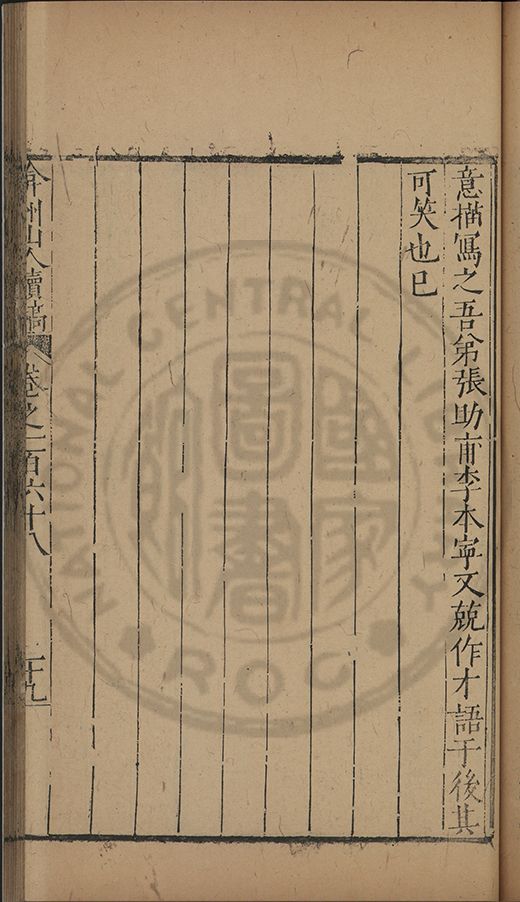 意描寫之吾弟張助甫李本寧又競作才語于後其
可笑也已
弇州山人續稿 卷之一百六十八 二十九
NATIONAL CENTRAL LIBRARY
ROC
國家圖書館